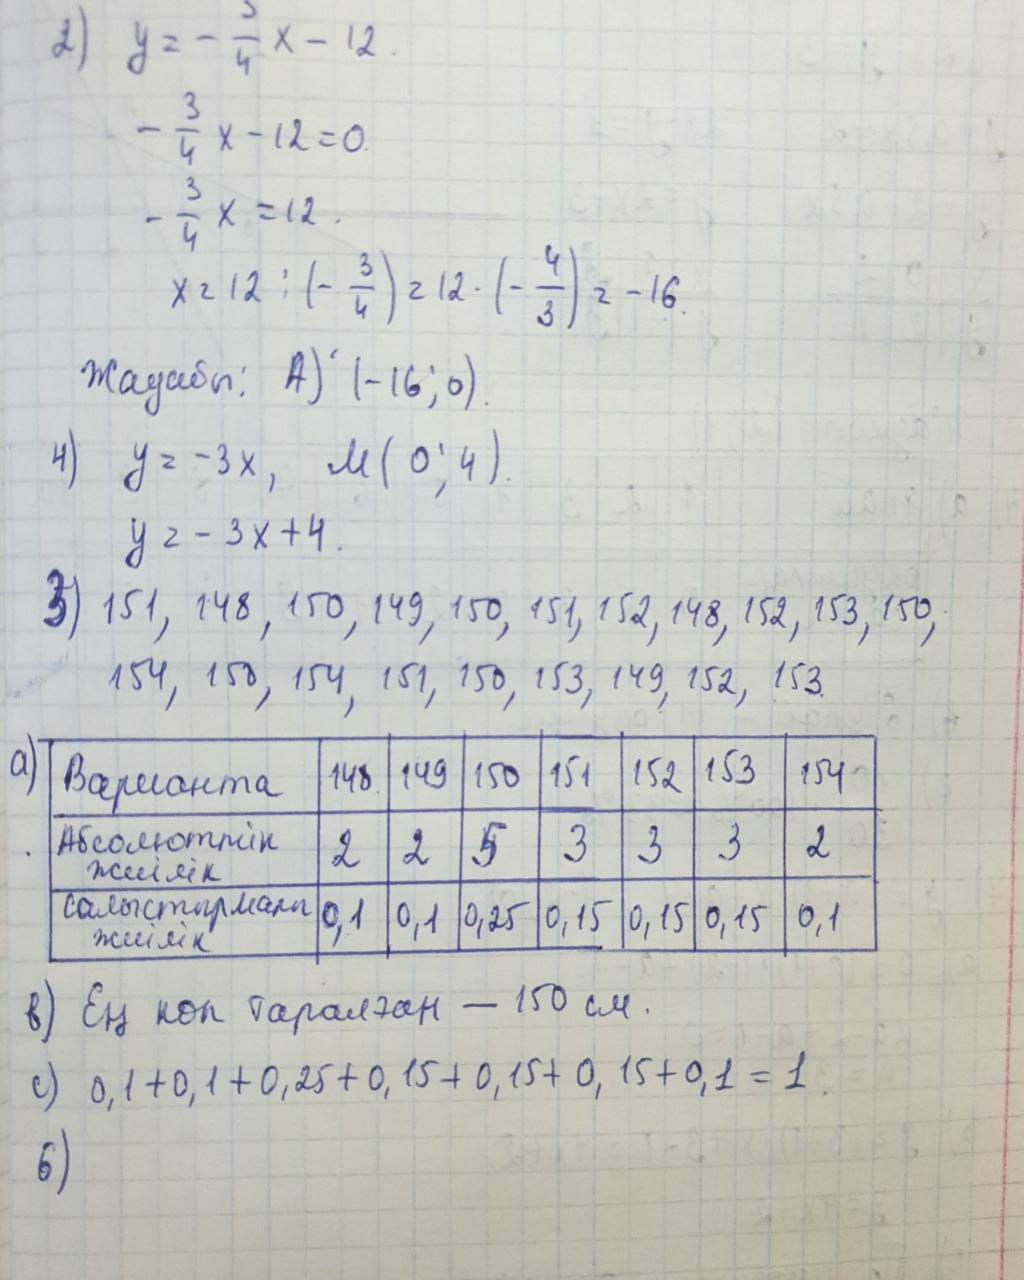 2) y = - 3/4 x - 12.
- 3/4 x - 12 = 0.
- 3/4 x = 12.
x = 12 : (- 3/4) = 12 · (- 4/3) = -16.
Жауабы: А) (-16; 0).
4) y = -3x, М( 0; 4).
y = - 3x + 4.
3) 151, 148, 150, 149, 150, 151, 152, 148, 152, 153, 150,
154, 150, 154, 151, 150, 153, 149, 152, 153.
а) Варианта 148 149 150 151 152 153 154
Абсолюттік жиілік 2 2 5 3 3 3 2
Салыстырмалы жиілік 0,1 0,1 0,25 0,15 0,15 0,15 0,1
в) Ең көп таралған — 150 см.
с) 0,1 + 0,1 + 0,25 + 0,15 + 0,15 + 0,15 + 0,1 = 1.
6)